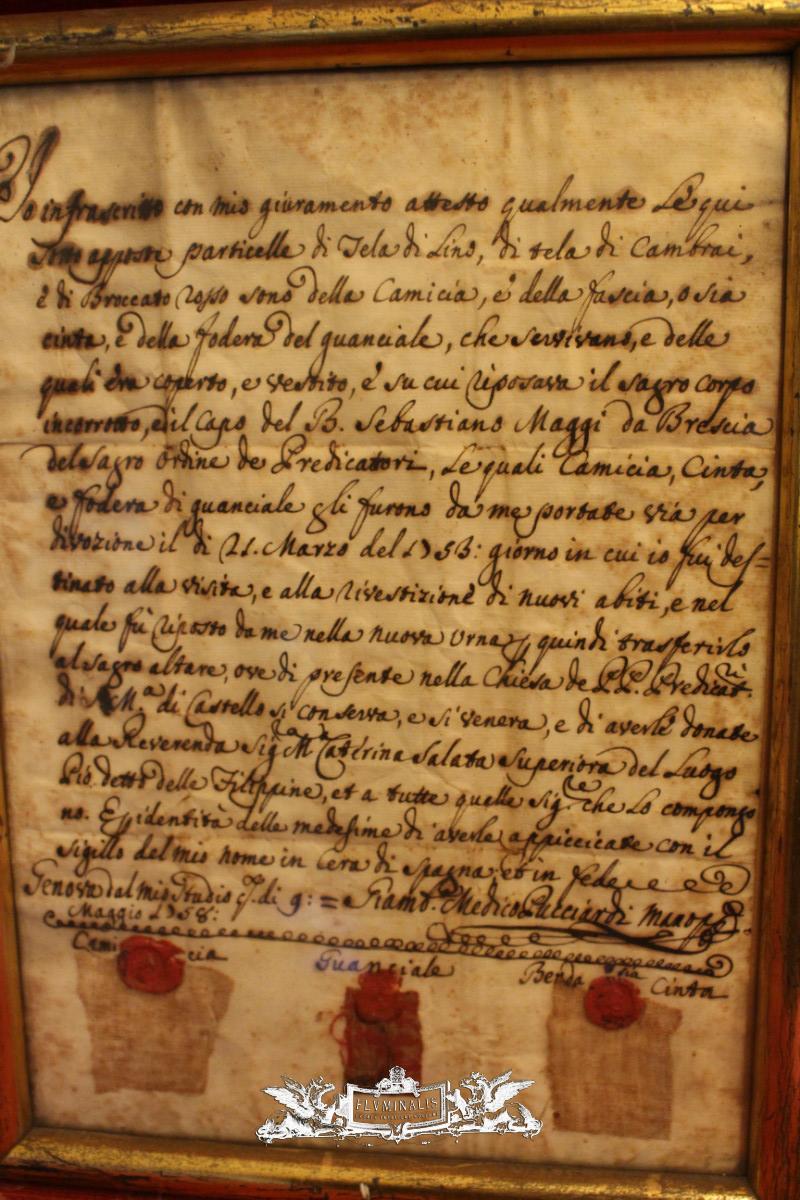 Io infrascritto con mio giuramento attesto qualmente Le qui
sotto apposte particelle di Tela di Lino, di tela di Cambrai,
è di Broccato rosso sono della Camicia, e della fascia, o sia
cinta, e della fodera del guanciale, che servivano, e delle
quali era coperto, e vestito, e su cui riposava il sagro corpo
incorrotto, e il Capo del B. Sebastiano Maggi da Brescia
del sagro Ordine de Predicatori, Le quali Camicia, Cinta,
e fodera di guanciale gli furono da me portate via per
divozione il di 21. Marzo del 1753: giorno in cui io fui des=
tinato alla visita, e alla rivestizione di nuovi abiti, e nel
quale fù riposto da me nella nuova Urna quindi trasferirlo
al sagro altare, ove di presente nella Chiesa de PP. Predicat.ri
di S. M.a di Castello si conserva, e si venera, e di averle donate
alla Reverenda Sig.ra M.a Catérina Salata Superiora del Luogo
Pio detto delle Filippine, et a tutte quelle Sig.re che Lo compongo
no. E identità delle medesime di averle appiccicate con il
sigillo del mio nome in Cera di Spagna; et in fede
Genova dal mio studio di 9: = Giamb. Medico Pucciardi
Maggio 1758:
Camicia
Guanciale
Benda sia Cinta
FLVMINALIS